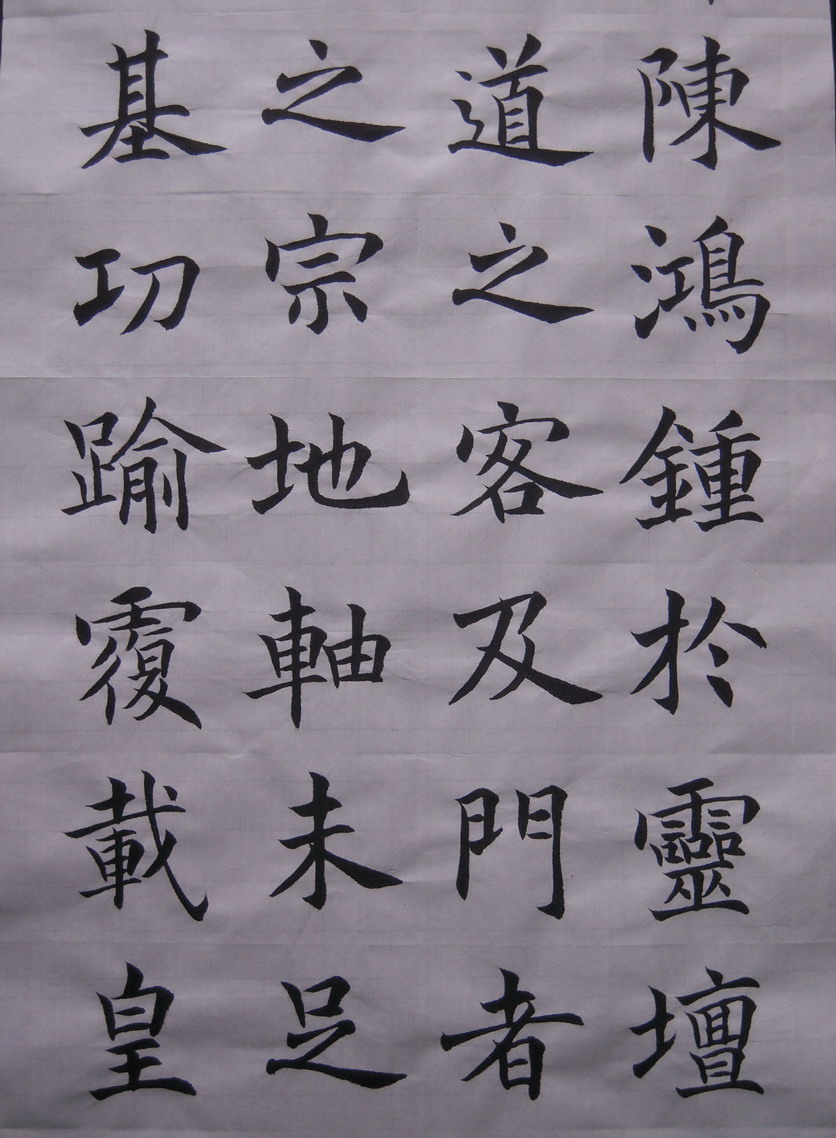 陳鴻鍾於靈壇
道之客及門者
之宗地軸未足
基功踰覆載皇